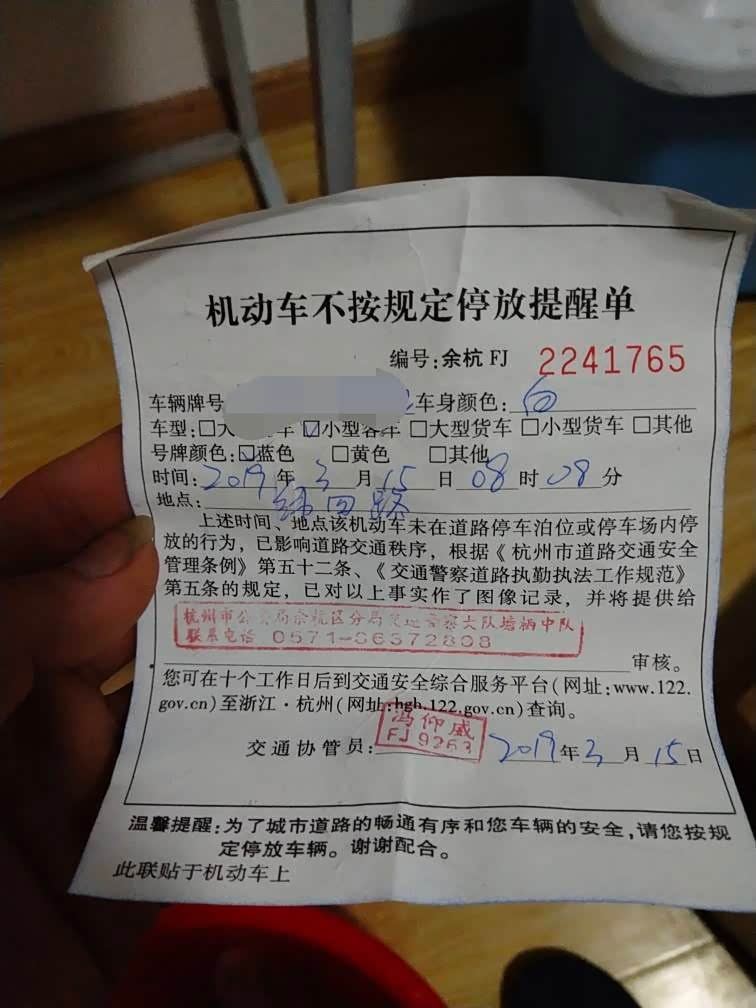 机动车不按规定停放提醒单
编号:余杭 FJ 2241765
车辆牌号 车身颜色:白
车型:□大 车 ☑小型客车 □大型货车 □小型货车 □其他
号牌颜色:☑蓝色 □黄色 □其他
时间:2019年3月15日08时08分
地点: 路
上述时间、地点该机动车未在道路停车泊位或停车场内停
放的行为，已影响道路交通秩序，根据《杭州市道路交通安全
管理条例》第五十二条、《交通警察道路执勤执法工作规范》
第五条的规定，已对以上事实作了图像记录，并将提供给
杭州市公安局余杭区分局交通警察大队塘栖中队
联系电话 0571-86372808
审核。
您可在十个工作日后到交通安全综合服务平台(网址:www.122.
gov.cn)至浙江·杭州(网址:hgh.122.gov.cn)查询。
冯仰威
FJ 9263
交通协管员: 2019年3月15日
温馨提醒:为了城市道路的畅通有序和您车辆的安全,请您按规
定停放车辆。谢谢配合。
此联贴于机动车上